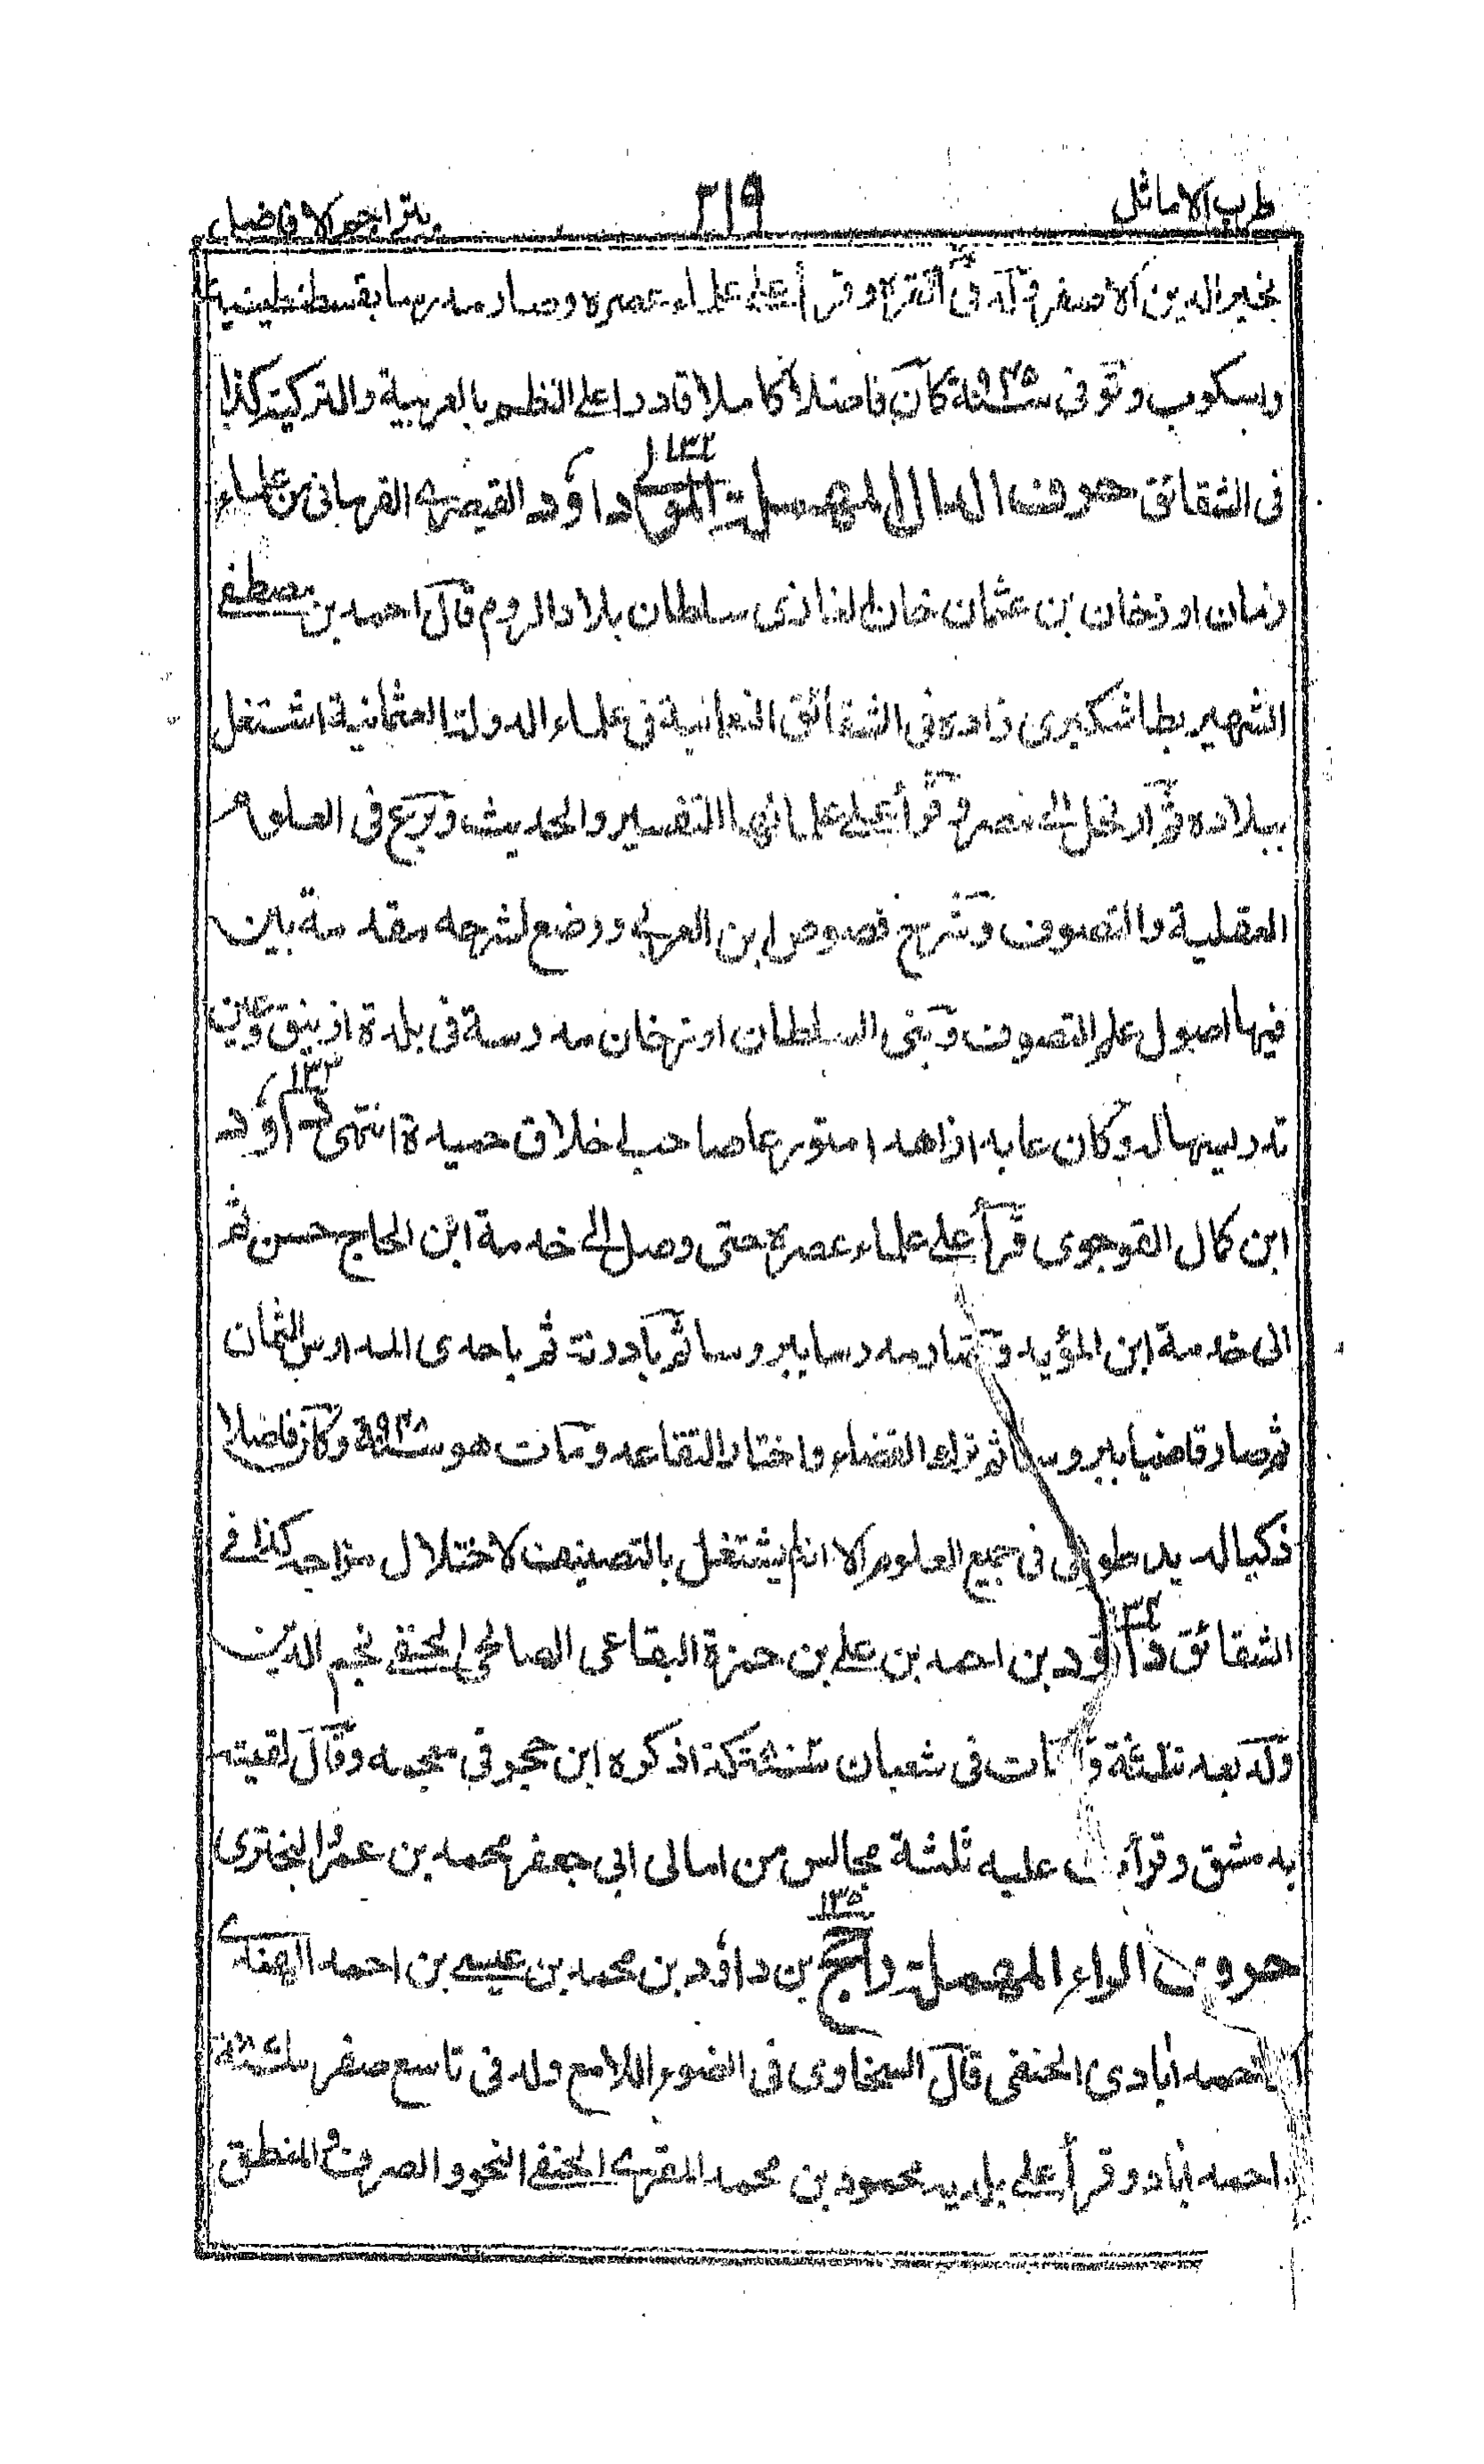 طرب الاماثل ٢١٩ بتراجم الافاضل
بخير الدين الاصغر ولد فى انقره وقرأ على علماء عصره وصار مدرسا بقسطنطينية
واسكوب وتوفى سنة ٩٣٥ كان فاضلا كاملا قادرا على النظم بالعربية والتركية كذا
فى الشقائق حرف الدال المهملة ١٣٢ داود القيصرى القرمانى من علماء
زمان اورخان بن عثمان خان الغازى سلطان بلاد الروم قال احمد بن مصطفى
الشهير بطاشكبرى زاده فى الشقائق النعمانية فى علماء الدولة العثمانية اشتغل
ببلاده ثم ارتحل الى مصر وقرأ على علمائها التفسير والحديث وبرع فى العلوم
العقلية والتصوف وشرح فصوص ابن العربى ووضع لشرحه مقدمة بين
فيها اصول علم التصوف وبنى السلطان اورخان مدرسة فى بلدة ازنيق وعين
تدريسها له وكان عابدا زاهدا متورعا صاحب اخلاق حميدة انتهى ١٣٣ داود
ابن كمال القوجوى قرأ على علماء عصره حتى وصل الى خدمة ابن الحاج حسن ثم
الى خدمة ابن المؤيد وصار مدرسا ببروسا ثم بادرنة ثم باحدى المدارس الثمان
ثم صار قاضيا ببروسا ثم ترك القضاء واختار التقاعد ومات هو سنة ٩٤٨ وكان فاضلا
ذكيا له يد طولى فى جميع العلوم الا انه لم يشتغل بالتصنيف لاختلال مزاجه كذا فى
الشقائق ١٣٤ داود بن احمد بن على بن حمزة البقاعى الصالحى الحنفى نجم الدين
ولد بعد ثلثة ومات فى شعبان كذا ذكره ابن حجر فى معجمه وقال لقيته
بدمشق وقرأت عليه ثلثة مجالس من امالى ابى جعفر محمد بن عمرو البخترى
حرف الراء المهملة ١٣٥ راجح بن داود بن محمد بن عيسى بن احمد الهندى
احمد ابادى الحنفى قال السخاوى فى الضوء اللامع ولد فى تاسع صفر
احمد اباد وقرأ على بلديه محمود بن محمد المقرى الحنفى النحو والصرف والمنطق